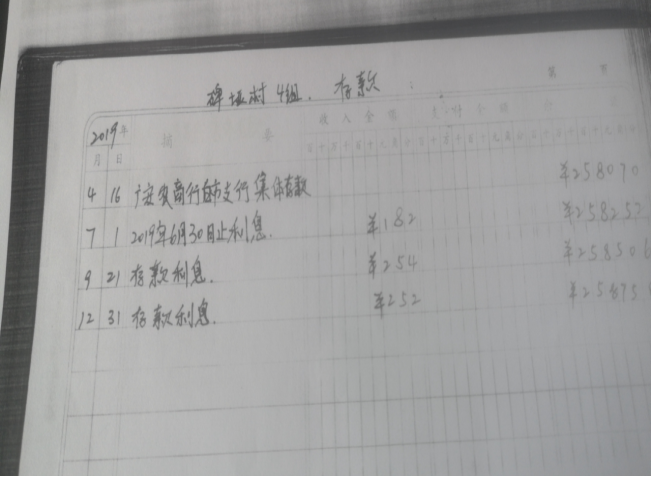 碑垭村4组. 存款
第 页
2019年 摘 要 收入金额
月 日
4 16 广安农商行白市支行集体存款 ¥258070
7 1 2019年6月30日止利息. ¥182 ¥258252
9 21 存款利息. ¥254 ¥258506
12 31 存款利息. ¥252 ¥25875